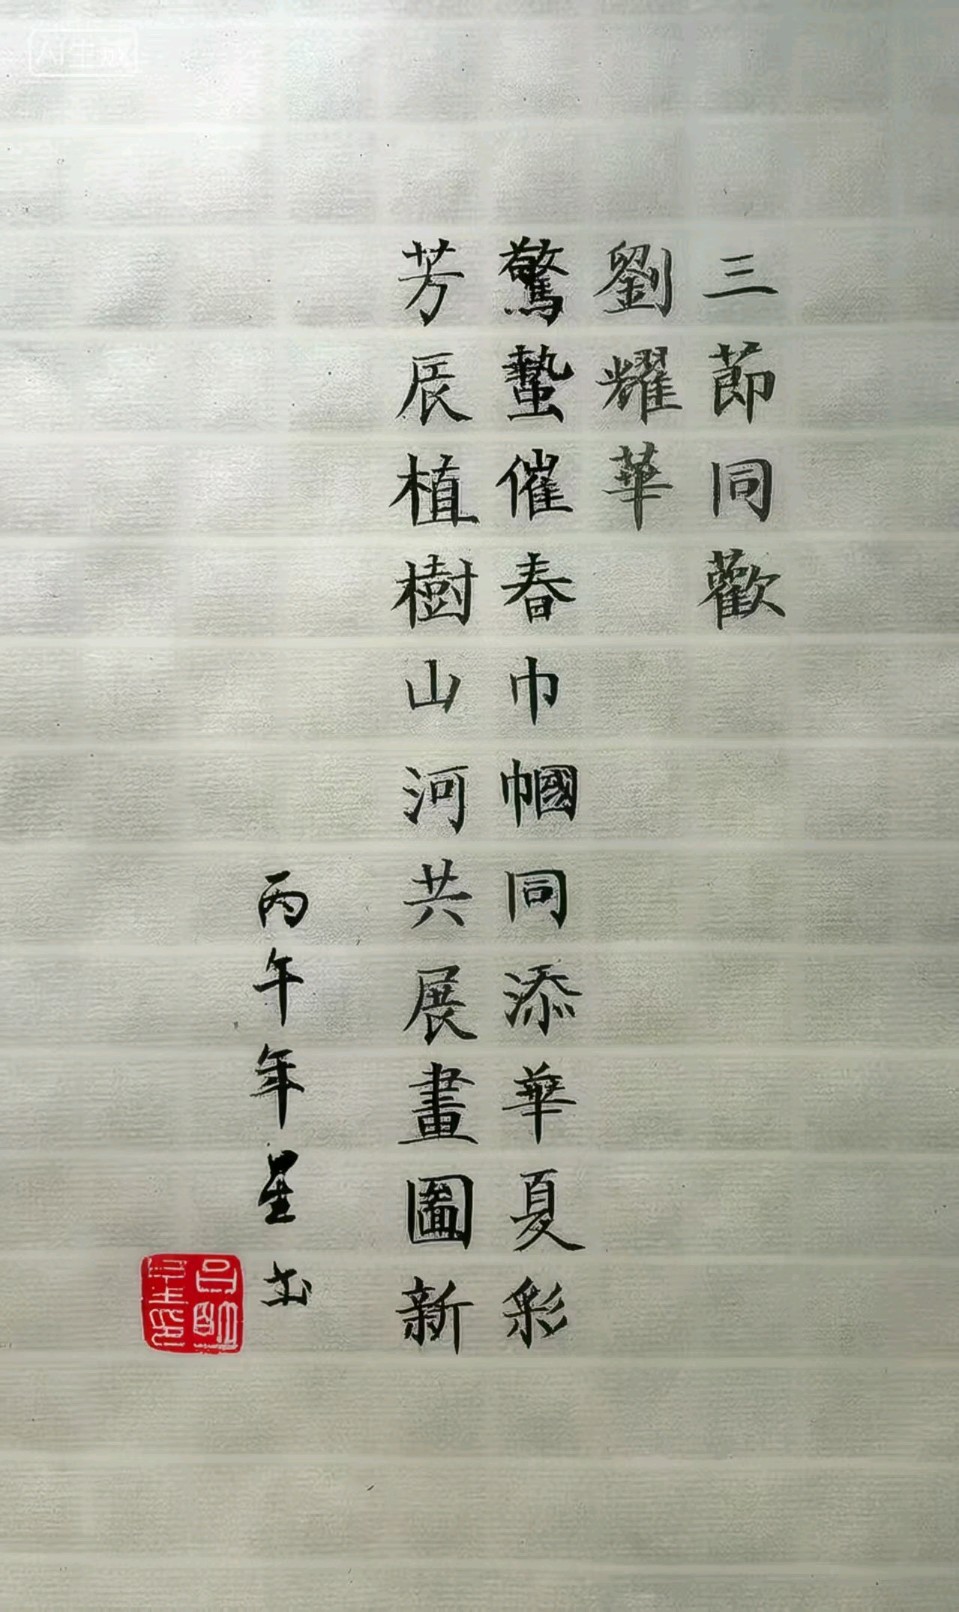 三節同歡
劉耀華
驚蟄催春巾幗同添華夏彩
芳辰植樹山河共展畫圖新
丙午年星书
AI生成